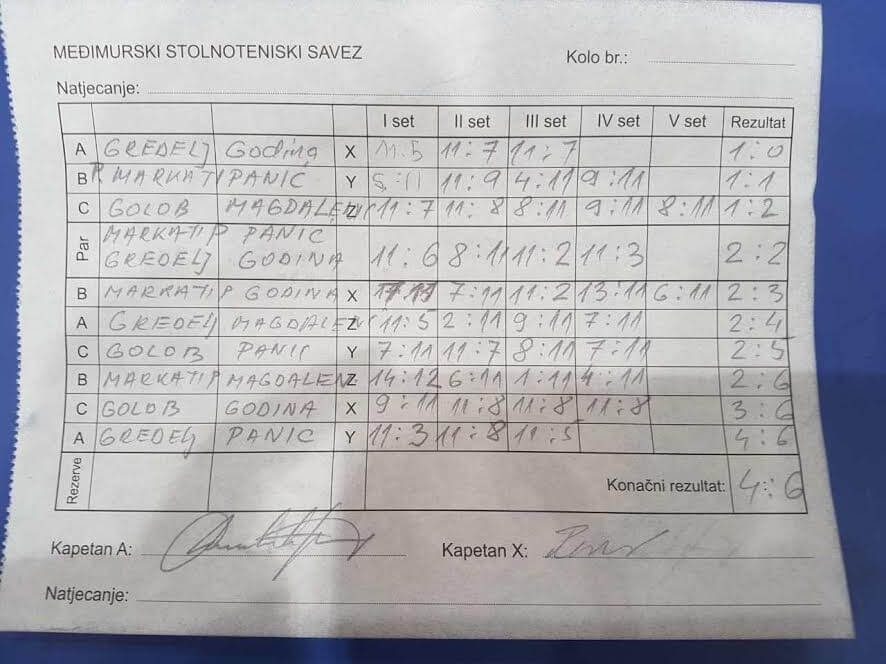 MEĐIMURSKI STOLNOTENISKI SAVEZ
Kolo br.:
Natjecanje:
I set II set III set IV set V set Rezultat
A GREDELJ Godina X 11:5 11:7 11:7 1:0
B MARKATIP PANIĆ Y 5:11 11:9 4:11 9:11 1:1
C GOLOB MAGDALENIĆ Z 11:7 11:8 8:11 9:11 8:11 1:2
Par MARKATIP PANIC
GREDELJ GODINA 11:6 8:11 11:2 11:3 2:2
B MARKATIP GODINA X 7:11 11:2 13:11 6:11 2:3
A GREDELJ MAGDALENIĆ Z 11:5 2:11 9:11 7:11 2:4
C GOLOB PANIC Y 7:11 11:7 8:11 7:11 2:5
B MARKATIP MAGDALEN Z 14:12 6:11 1:11 4:11 2:6
C GOLOB GODINA X 9:11 11:8 11:8 11:8 3:6
A GREDELJ PANIC Y 11:3 11:8 11:5 4:6
Rezerve Konačni rezultat: 4:6
Kapetan A: Kapetan X:
Natjecanje: